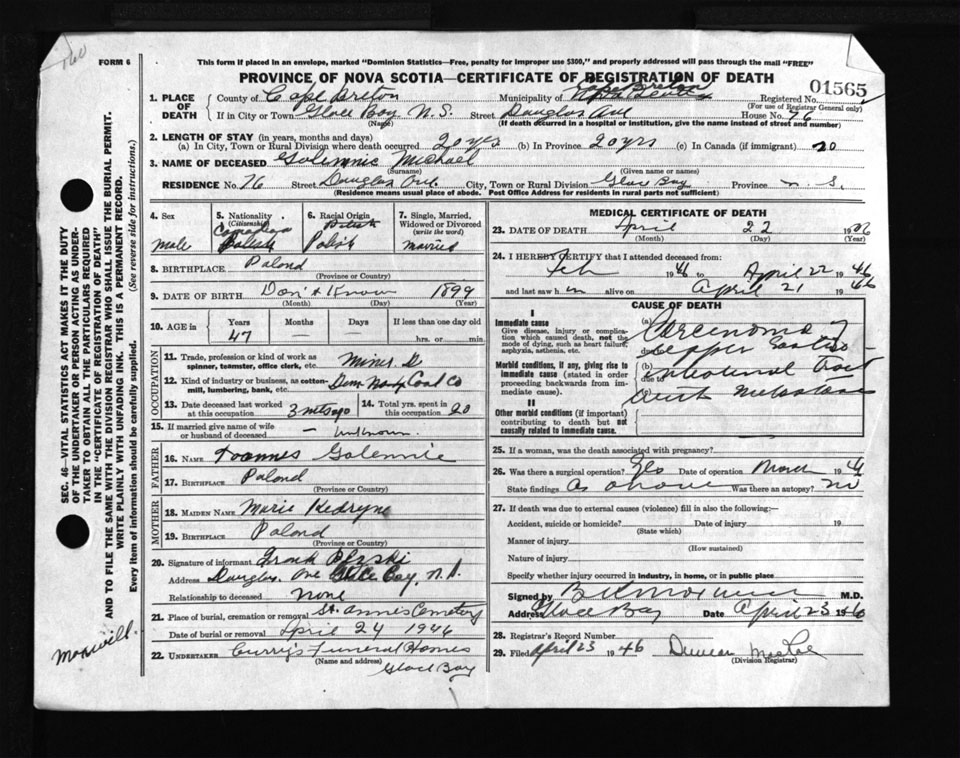 FORM 6
This form if placed in an envelope, marked "Dominion Statistics—Free, penalty for improper use $300," and properly addressed will pass through the mail "FREE"
PROVINCE OF NOVA SCOTIA—CERTIFICATE OF REGISTRATION OF DEATH
01565
1. PLACE OF DEATH
County of Cape Breton Municipality of Cape Breton Registered No.
(For use of Registrar General only)
If in City or Town Glace Bay N.S. Street Douglas Ave House No. 76
(Name) (If death occurred in a hospital or institution, give the name instead of street and number)
2. LENGTH OF STAY (in years, months and days)
(a) In City, Town or Rural Division where death occurred 20 yrs (b) In Province 20 yrs (c) In Canada (if immigrant) 20
3. NAME OF DECEASED Golemnic Michael
(Surname) (Given name or names)
RESIDENCE No. 76 Street Douglas Ave. City, Town or Rural Division Glace Bay Province N. S.
(Residence means usual place of abode. Post Office Address for residents in rural parts not sufficient)
4. Sex
male
5. Nationality (Citizenship)
Canadian
Polish
6. Racial Origin
Polish
7. Single, Married, Widowed or Divorced (write the word)
married
8. BIRTHPLACE Poland
(Province or Country)
9. DATE OF BIRTH Don't Know 1899
(Month) (Day) (Year)
10. AGE in Years Months Days If less than one day old
47 — — hrs. or min.
OCCUPATION
11. Trade, profession or kind of work as spinner, teamster, office clerk, etc. Miner
12. Kind of industry or business, as cotton-mill, lumbering, bank, etc. Dom. Coal Co
13. Date deceased last worked at this occupation 3 mts ago
14. Total yrs. spent in this occupation 20
15. If married give name of wife or husband of deceased — unknown
FATHER
16. Name Ioannes Golemnic
17. Birthplace Poland
(Province or Country)
MOTHER
18. Maiden Name Marie Kedryne
19. Birthplace Poland
(Province or Country)
20. Signature of informant Frank
Address Douglas Ave Glace Bay, N.S.
Relationship to deceased none
21. Place of burial, cremation or removal St. Annes Cemetery
Date of burial or removal April 24 1946
22. UNDERTAKER Curry's Funeral Homes
(Name and address) Glace Bay
MEDICAL CERTIFICATE OF DEATH
23. DATE OF DEATH April 22 1946
(Month) (Day) (Year)
24. I HEREBY CERTIFY that I attended deceased from:
Feb 1946 to April 22 1946
and last saw him alive on April 21 1946
CAUSE OF DEATH
I
Immediate cause
Give disease, injury or complication which caused death, not the mode of dying, such as heart failure, asphyxia, asthenia, etc.
(a) Carcinoma of
due to upper Gastro-
Morbid conditions, if any, giving rise to immediate cause (stated in order proceeding backwards from immediate cause).
(b) intestinal tract
due to
(c) with metastases
II
Other morbid conditions (if important) contributing to death but not causally related to immediate cause.
25. If a woman, was the death associated with pregnancy?
26. Was there a surgical operation? Yes Date of operation March 1946
State findings as above Was there an autopsy? no
27. If death was due to external causes (violence) fill in also the following:—
Accident, suicide or homicide? Date of injury 19
(State which)
Manner of injury
(How sustained)
Nature of injury
Specify whether injury occurred in industry, in home, or in public place
Signed by M.D.
Address Glace Bay Date April 23 1946
28. Registrar's Record Number
29. Filed April 23 1946 Duncan
(Division Registrar)
SEC. 46—VITAL STATISTICS ACT MAKES IT THE DUTY
OF THE UNDERTAKER OR PERSON ACTING AS UNDER-
TAKER TO OBTAIN ALL THE PARTICULARS REQUIRED
IN THE "CERTIFICATE OF REGISTRATION OF DEATH"
AND TO FILE THE SAME WITH THE DIVISION REGISTRAR WHO SHALL ISSUE THE BURIAL PERMIT.
WRITE PLAINLY WITH UNFADING INK. THIS IS A PERMANENT RECORD.
Every item of information should be carefully supplied. (See reverse side for instructions.)
Maxwell.